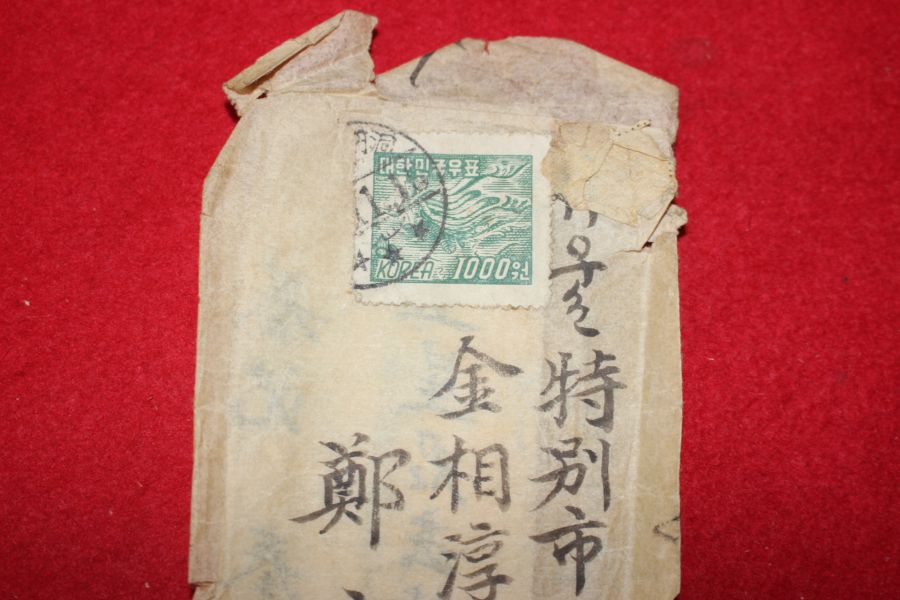 대한민국우표
KOREA 1000원
서울 特別市
金相淳
鄭